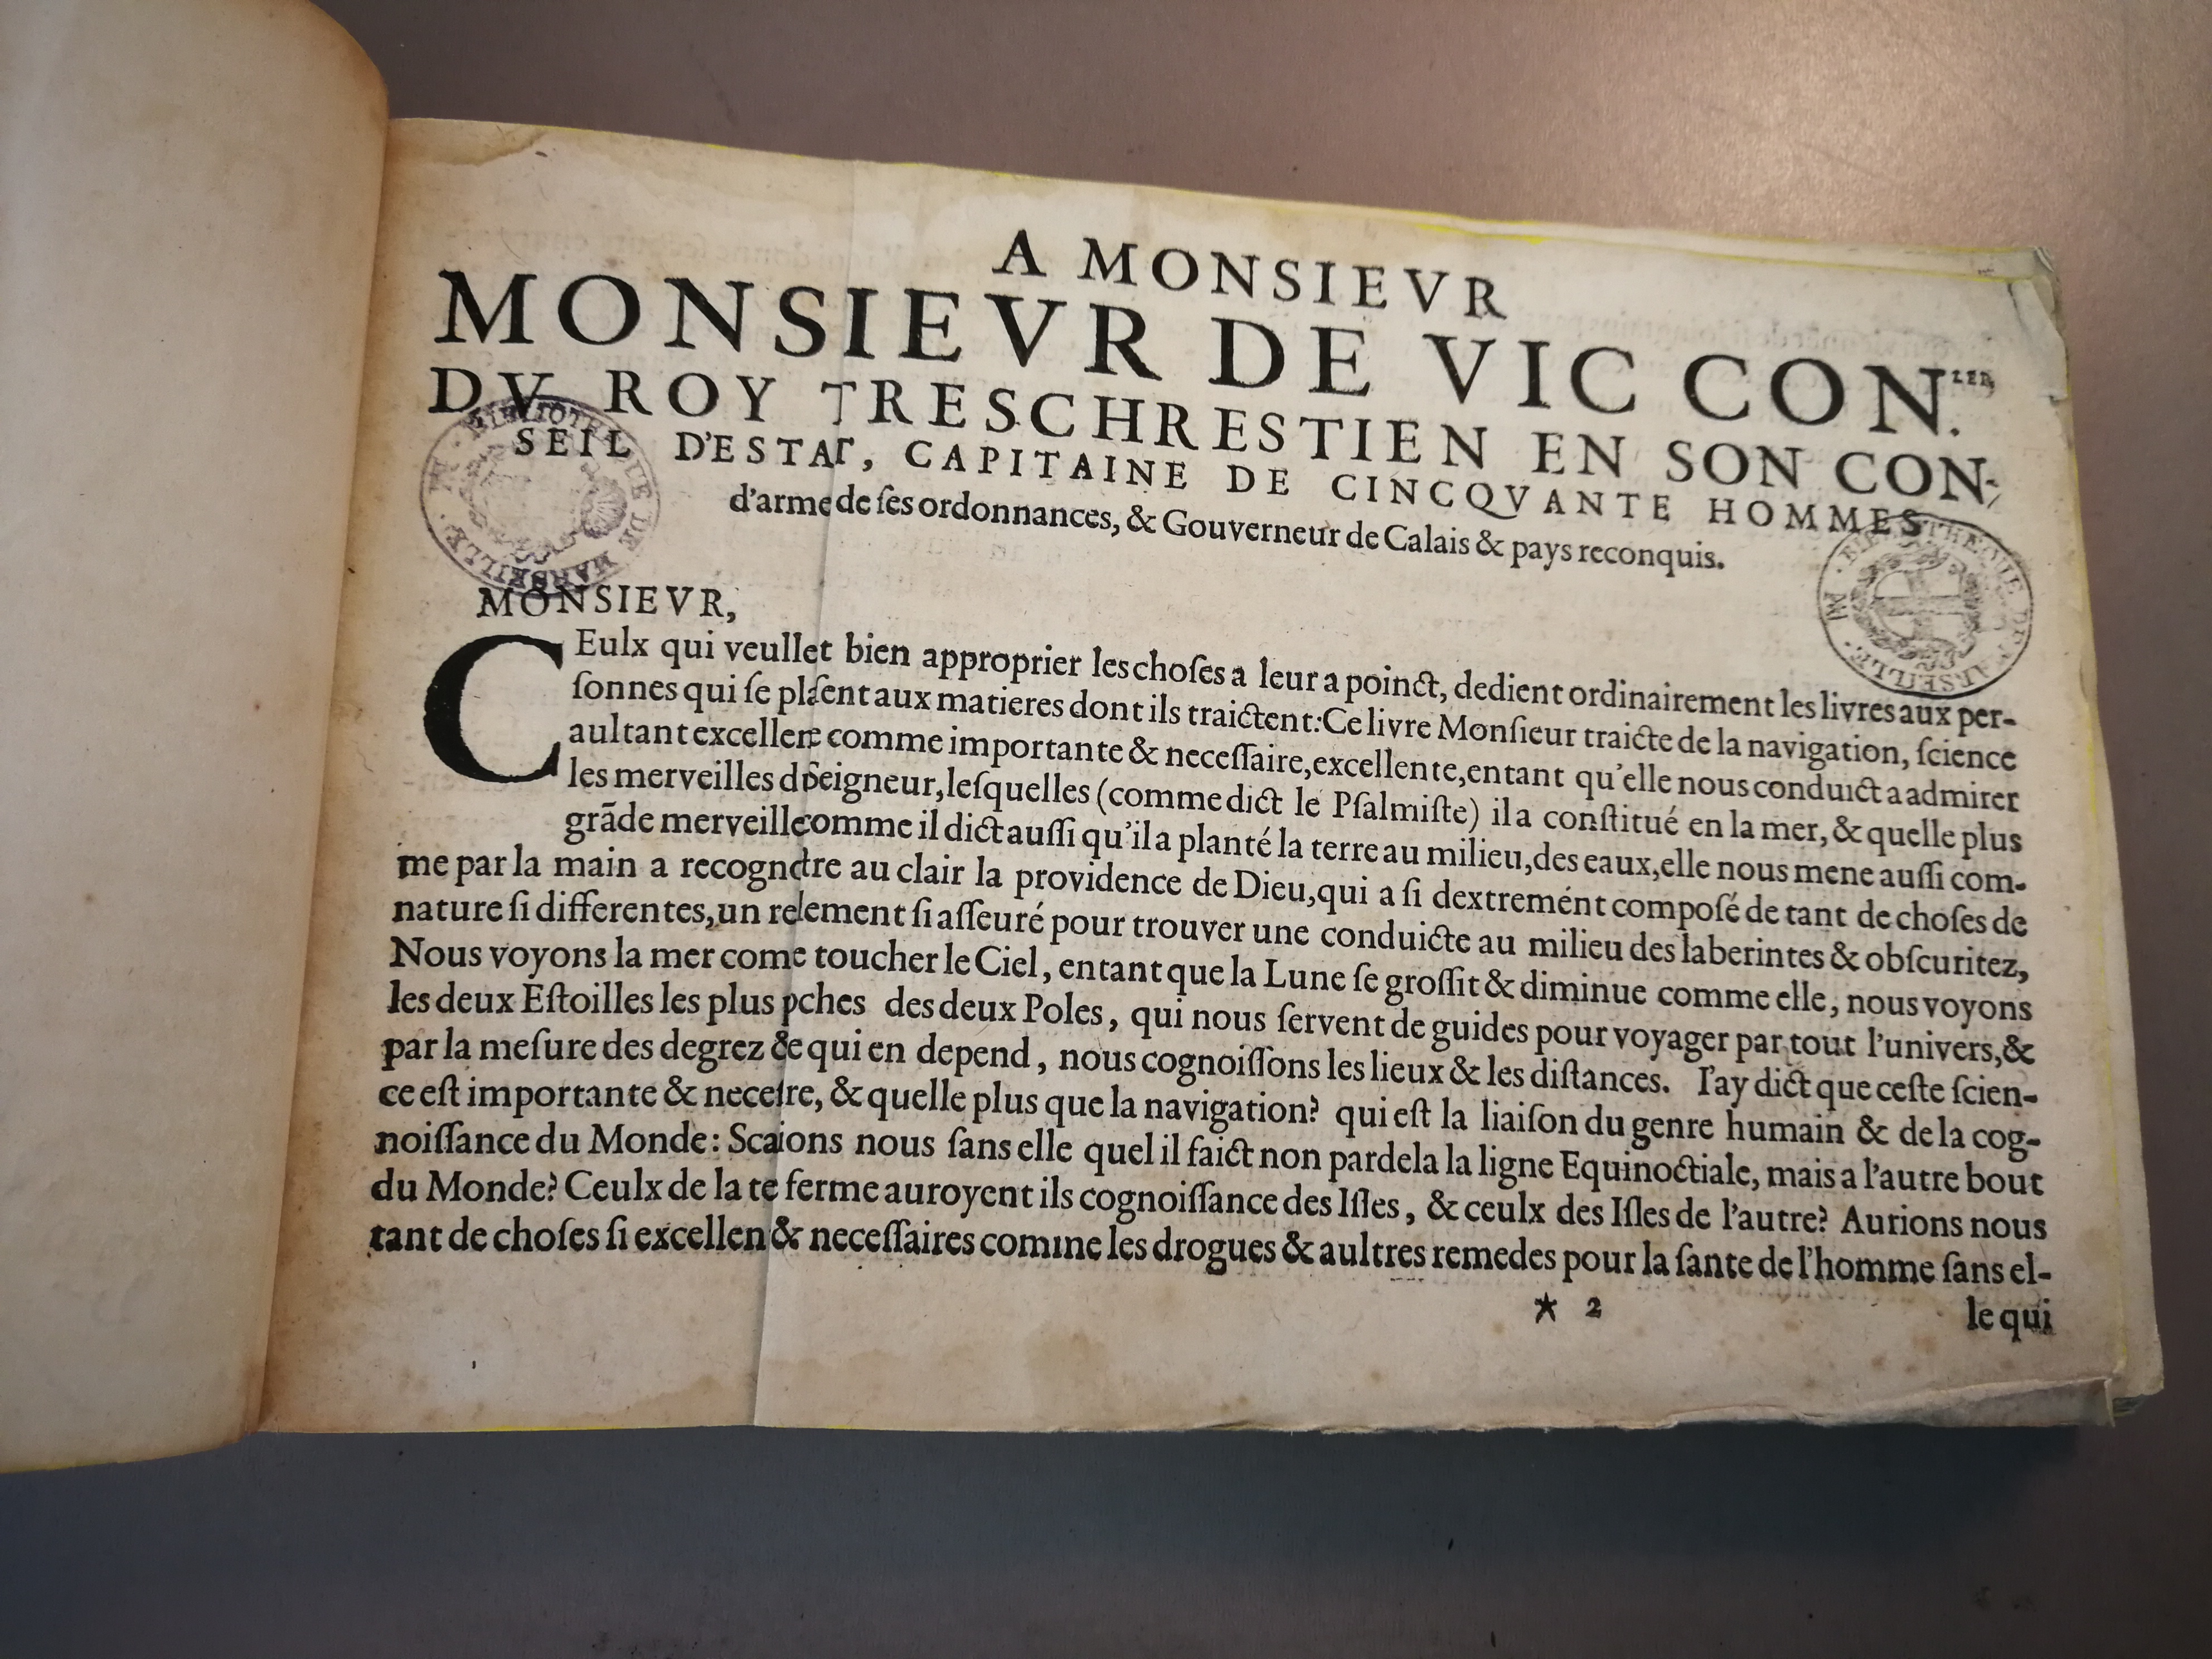 A MONSIEVR
MONSIEVR DE VIC CON.LER,
DV ROY TRESCHRESTIEN EN SON CON-
SEIL D'ESTAT, CAPITAINE DE CINCQVANTE HOMMES
d'arme de ſes ordonnances, & Gouverneur de Calais & pays reconquis.
BIBLIOTHEQUE DE MARSEILLE
BIBLIOTHEQUE DE MARSEILLE
MONSIEVR,
CEulx qui veullet bien approprier les choſes a leur a poinct, dedient ordinairement les livres aux per-
ſonnes qui ſe plſent aux matieres dont ils traictent: Ce livre Monſieur traicte de la navigation, ſcience
aultant excellen comme importante & neceſſaire, excellente, entant qu'elle nous conduict a admirer
les merveilles d Seigneur, leſquelles (comme dict le Pſalmiſte) il a conſtitué en la mer, & quelle plus
grãde merveille comme il dict auſſi qu'il a planté la terre au milieu, des eaux, elle nous mene auſſi com-
me par la main a recogn tre au clair la providence de Dieu, qui a ſi dextremént compoſé de tant de choſes de
nature ſi differentes, un re lement ſi aſſeuré pour trouver une conduicte au milieu des laberintes & obſcuritez,
Nous voyons la mer come toucher le Ciel, entant que la Lune ſe groſſit & diminue comme elle, nous voyons
les deux Eſtoilles les plus pches des deux Poles, qui nous ſervent de guides pour voyager par tout l'univers, &
par la meſure des degrez & e qui en depend, nous cognoiſſons les lieux & les diſtances. I'ay dict que ceſte ſcien-
ce eſt importante & nece re, & quelle plus que la navigation? qui eſt la liaiſon du genre humain & de la cog-
noiſſance du Monde: Scaions nous ſans elle quel il faict non pardela la ligne Equinoctiale, mais a l'autre bout
du Monde? Ceulx de la te ferme auroyent ils cognoiſſance des Iſles, & ceulx des Iſles de l'autre? Aurions nous
tant de choſes ſi excellen & neceſſaires comme les drogues & aultres remedes pour la ſante de l'homme ſans el-
★ 2 le qui